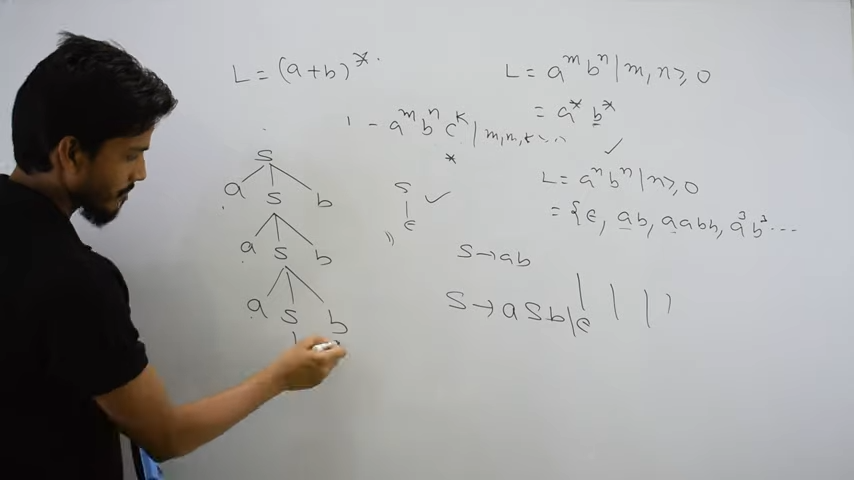 L = (a+b)*.
L = a^m b^n | m, n ≥, 0
= a* b*
- a^m b^n c^k | m, n, k
*
✓
L = a^n b^n | n ≥, 0
= {ϵ, ab, aabb, a^3 b^3 ...
S
a S b
a S b
a S b
S ✓
ϵ
S → ab
S → a S b | ϵ